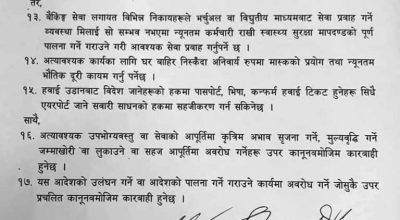 तर,
१३. बैंकिङ्ग सेवा लगायत विभिन्न निकायहरूले भर्चुअल वा विधुतीय माध्यमबाट सेवा प्रवाह गर्ने
व्यवस्था मिलाई सो सम्भव नभएमा न्यूनतम कर्मचारी राखी स्वास्थ्य सुरक्षा मापदण्डको पूर्ण
पालना गर्ने गराउने गरी आवश्यक सेवा प्रवाह गर्नुपर्ने छ ।
१४. अत्यावश्यक कार्यका लागि घर बाहिर निस्कँदा अनिवार्य रुपमा मास्कको प्रयोग तथा न्यूनतम
भौतिक दूरी कायम गर्नु पर्नेछ ।
१५. हवाई उडानबाट विदेश जानेहरूको हकमा पासपोर्ट, भिषा, कन्फर्म हवाई टिकट हुनेहरू सिधै
एयरपोर्ट जाने सवारी साधनको हकमा सहजीकरण गर्न सकिनेछ ।
साथै,
१६. अत्यावश्यक उपभोग्यवस्तु वा सेवाको आपूर्तिमा कृत्रिम अभाव सृजना गर्ने, मुल्यवृद्धि गर्ने
जम्माखोरी वा लुकाउने वा सहज आपूर्तिमा अवरोध गर्नेहरू उपर कानूनबमोजिम कारवाही
हुनेछ ।
१७. यस आदेशको उलंघन गर्ने वा आदेशको पालना गर्ने गराउने कार्यमा अवरोध गर्ने जोसुकै उपर
प्रचलित कानूनबमोजिम कारवाही हुनेछ ।